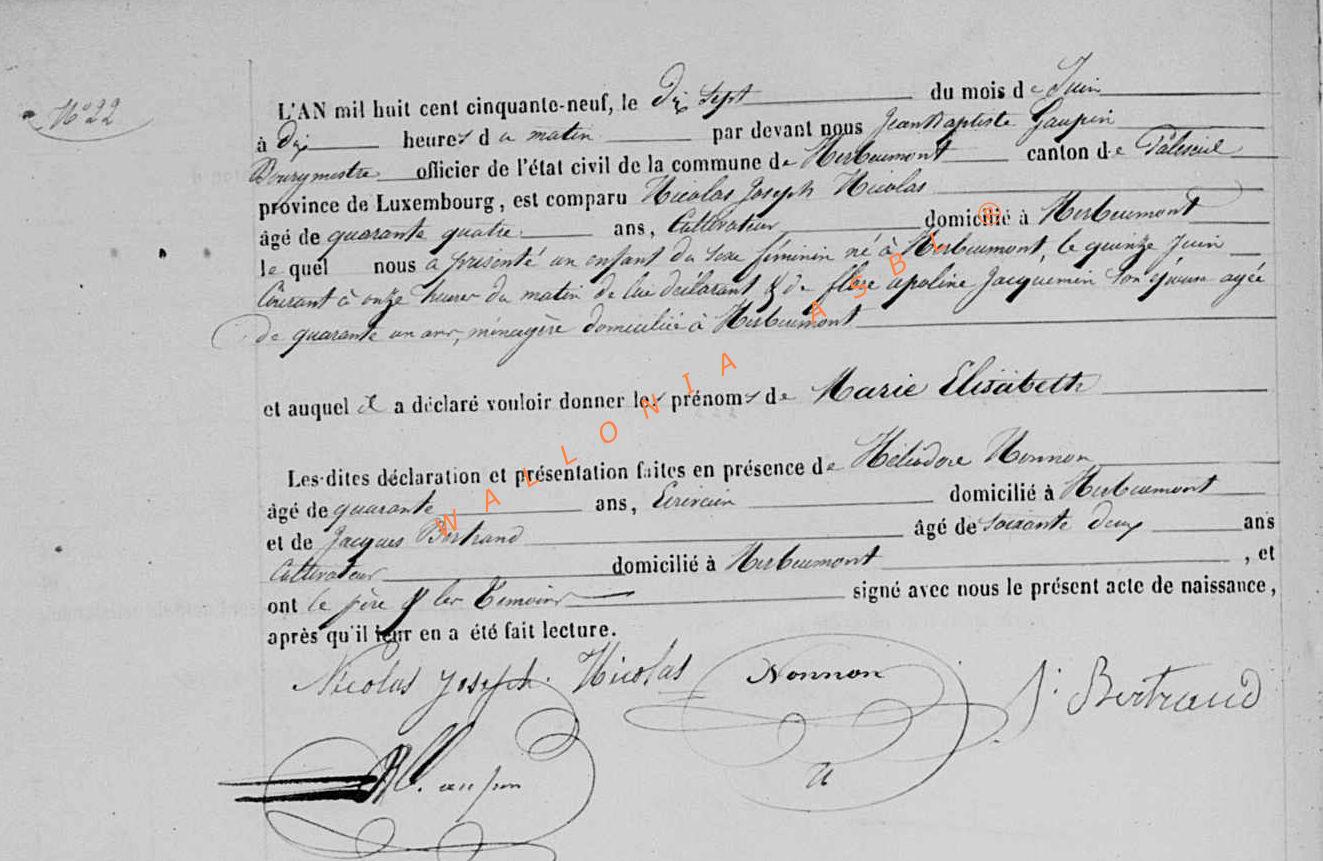 N° 22
L'AN mil huit cent cinquante-neuf, le Dix Sept du mois de Juin
à Dix heures du matin par devant nous Jean Baptiste Gaupin
Bourgmestre officier de l'état civil de la commune de Herbeumont canton de Paliseul
province de Luxembourg, est comparu Nicolas Joseph Nicolas
âgé de quarante quatre ans, Cultivateur domicilié à Herbeumont
le quel nous a présenté un enfant du sexe féminin né à Herbeumont, le quinze Juin
Courant à onze heures du matin de lui déclarant & de flore apoline Jacquemin son épouse agée
de quarante un ans, ménagère domiciliée à Herbeumont
et auquel il a déclaré vouloir donner les prénoms de Marie Elisabeth
Les-dites déclaration et présentation faites en présence de Héliodore Nonnon
âgé de quarante ans, Ecrivain domicilié à Herbeumont
et de Jacques Bertrand âgé de soixante deux ans
Cultivateur domicilié à Herbeumont, et
ont le père & les témoins signé avec nous le présent acte de naissance,
après qu'il leur en a été fait lecture.
Nicolas Joseph Nicolas Nonnon J. Bertrand
WALLONIA ASBL ®